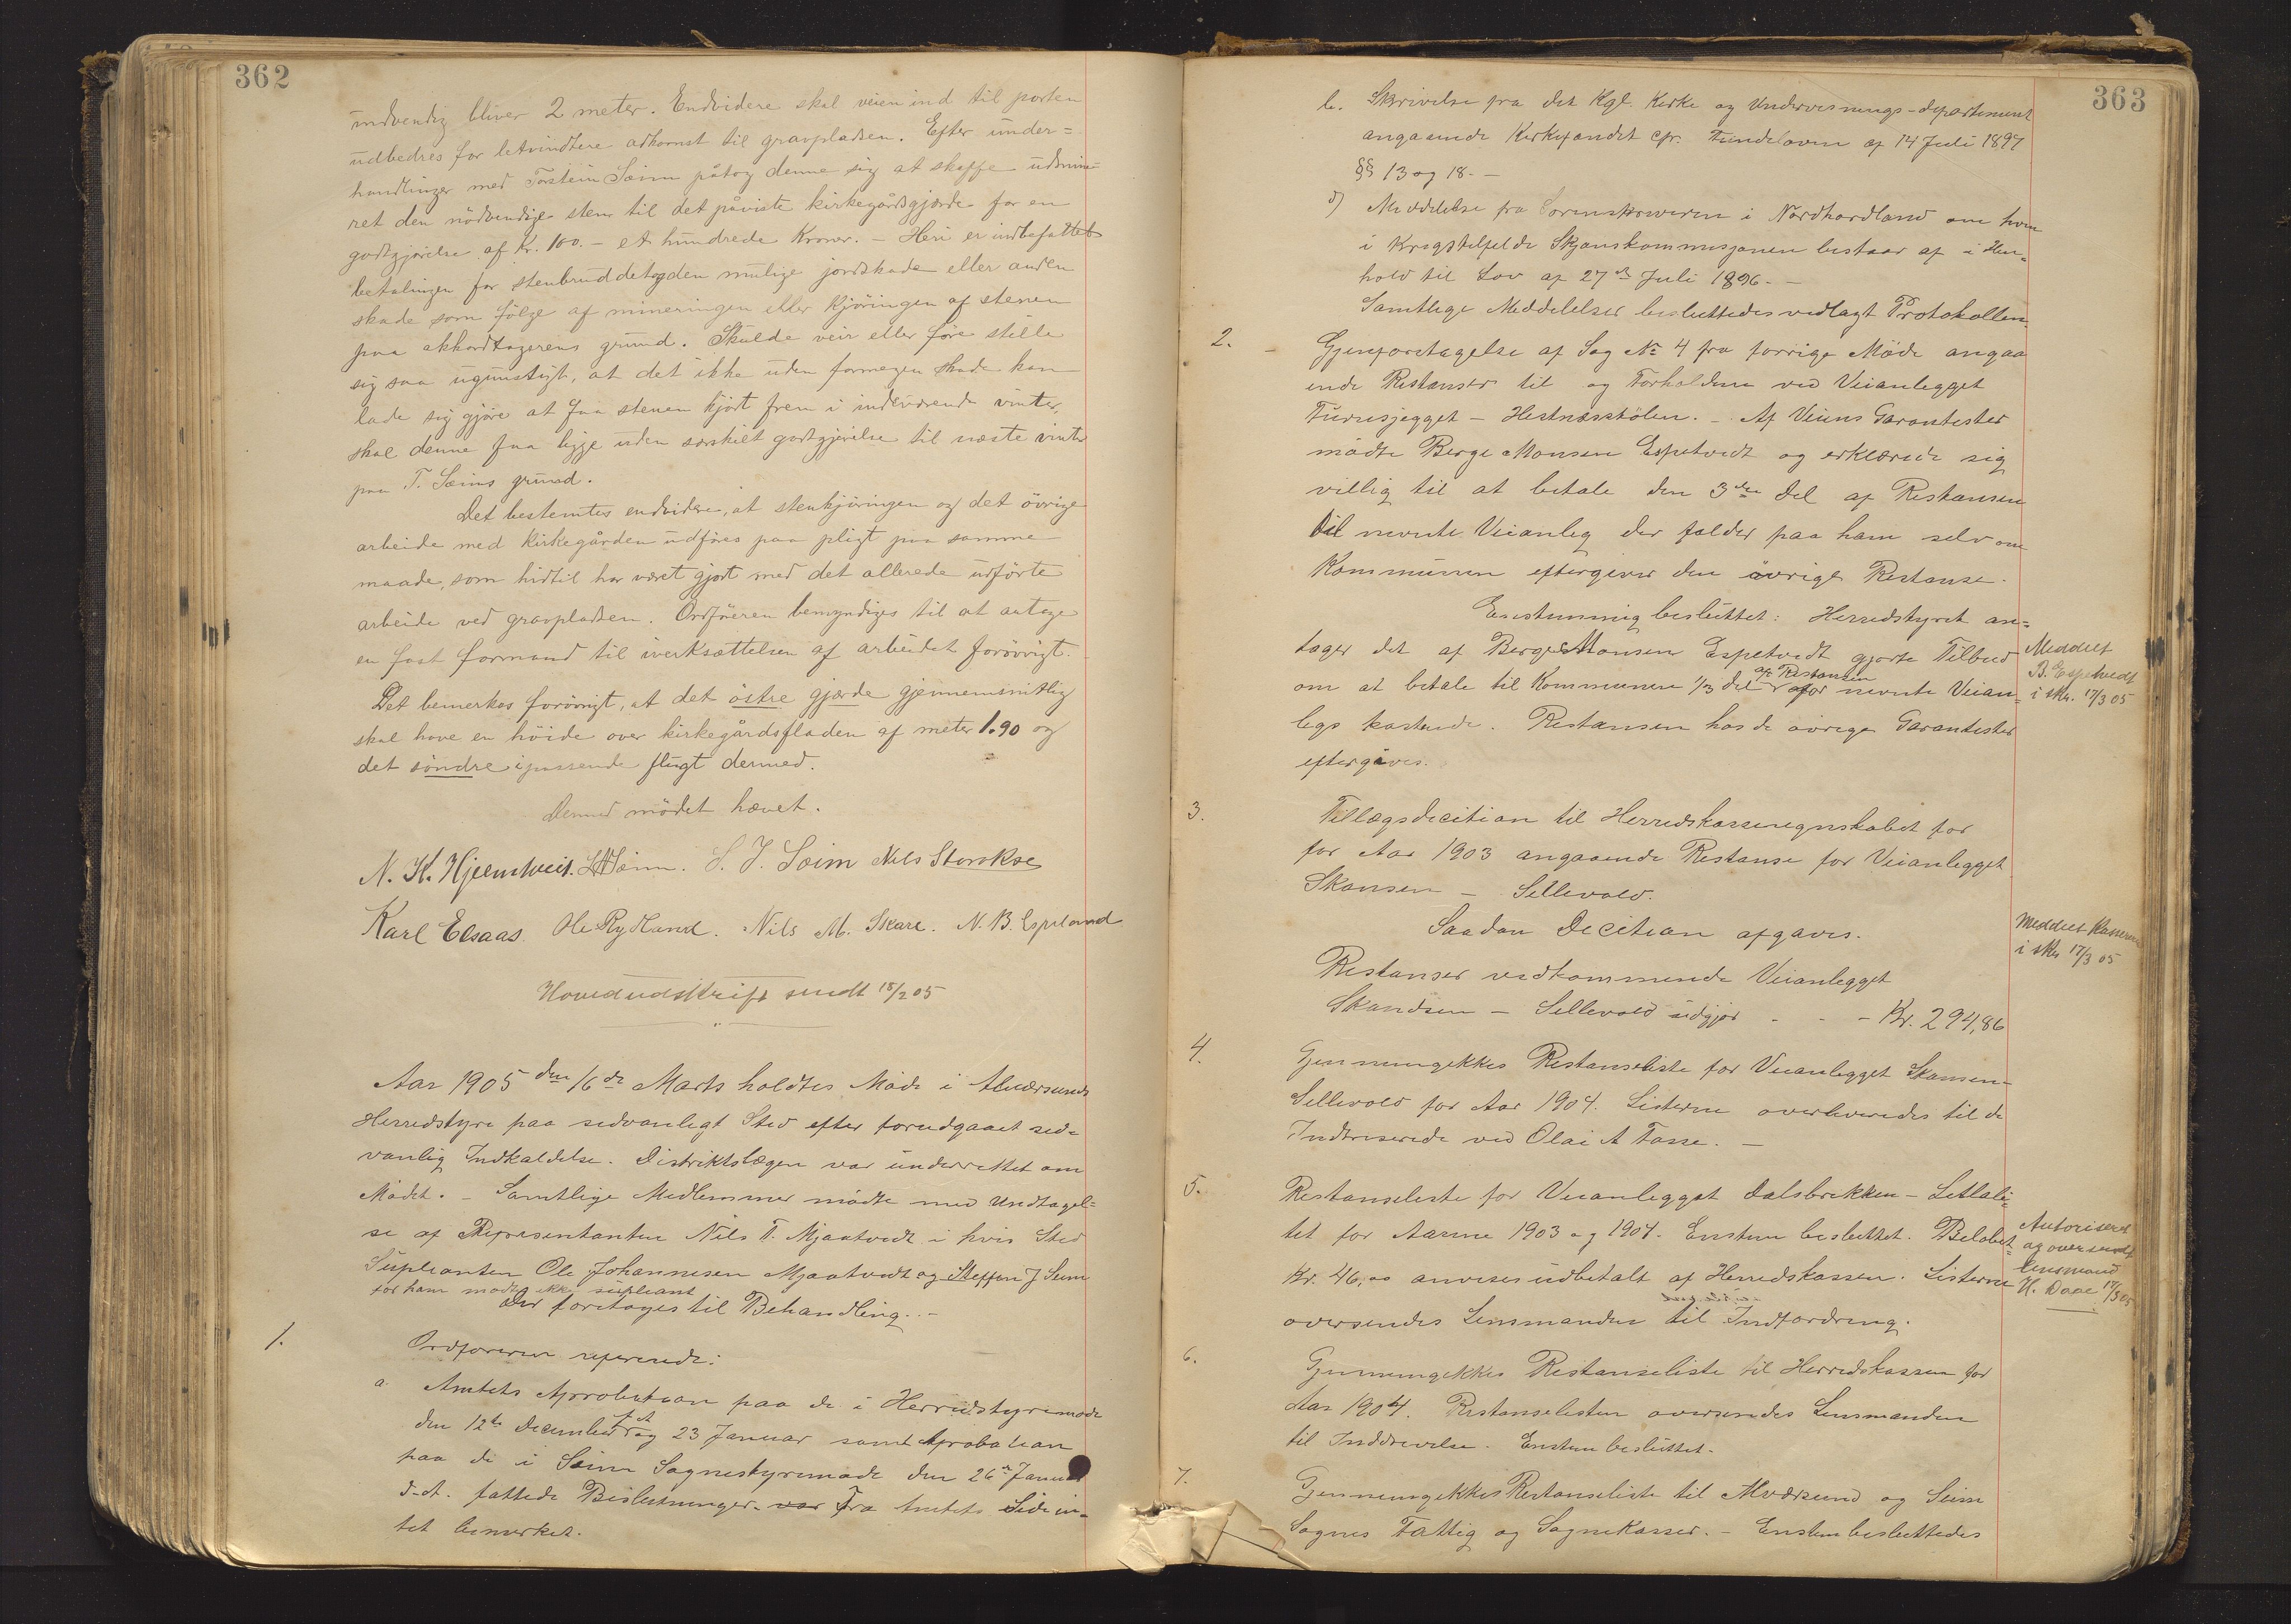 362
indvendig bliver 2 meter. Endvidere skal veien ind til porten
udbedres for letvindtere adkomst til gravpladsen. Efter under=
handlinger med Torstein Seim påtog denne sig at skaffe udmine-
ret den nödvendige sten til det påviste kirkegårdsgjærde for en
godtgjörelse af Kr. 100.- et hundrede Kroner. - Heri er indbefattet
betalingen for stenbruddet og den mulige jordskade eller anden
skade som følge af mineringen eller kjöringen af stenen
paa akkordtagerens grund. Skulde veir eller före stille
sig saa ugunstigt, at det ikke uden formegen skade kan
lade sig gjöre at faa stenen kjört frem i indeværende vinter,
skal denne faa ligge uden særskilt godtgjörelse til næste vinter
paa T. Seims grund.
Det bestemtes endvidere, at stenkjöringen og det övrige
arbeide med kirkegården udföres paa pligt paa samme
maade, som hidtil har været gjort med det allerede udförte
arbeide ved gravpladsen. Ordföreren bemyndiges til at antage
en fast formand til iverksættelsen af arbeidet forövrigt.
Det bemerkes forövrigt, at det östre gjærde gjennemsnitlig
skal have en höide over kirkegårdsfladen af meter 1.90 og
det söndre i passende flugt dermed.
Dermed mödet hævet.
N. K. Hjelmtveit. Seim. S. J. Seim Nils Storskse
Karl Elsaas Ole Rydland. Nils M. Skare. N. B. Espeland
Hovedudskrift sendt 18/2 05
Aar 1905 den 16de Marts holdtes Möde i Alversunds
Herredstyre paa sedvanlegt Sted efter forudgaaet sed-
vanlig Indkaldelse. Distriktslægen var underrettet om
Mödet. - Samtlige Medlemmer mödte med Undtagel-
se af Repræsentanten Nils T. Mjaatvedt i hvis Sted
Supleanten Ole Johannesen Mjaatvedt og Steffen J Seim
for ham mødte ikke supleant
Der foretoges til Behandling. -
1.
Ordföreren refererede:
a. Amtets Aprobation paa de i Herredstyremöde
den 12te December f.A. og 23 Januar samt Aprobation
paa de i Seim Sognestyremöde den 26de Januar
d.A. fattede Beslutninger. var Fra Amtets Side in-
tet bemerket.
363
b. Skrivelse fra det Kgl. Kirke og Undervisnings-departement
angaaende Kirkefondet cfr. Fundeloven af 14 Juli 1897
§§ 13 og 18. -
d) Meddelelse fra Sorenskriveren i Nordhordland om hvem
i Krigstilfelde Skjønskommisjonen bestaar af i Hen-
hold til Lov af 27de Juli 1896. -
Samtlige Meddelelser besluttedes vedlagt Protokollen.
2.
Gjenforetagelse af Sag No 4 fra forrige Möde angaa
ende Restanser til og Forholdene ved Veianlegget
Furresjegget - Hestnesstölen. - Af Veiens Garantister
mödte Berge Monsen Espetvedt og erklærede sig
villig til at betale den 3die del af Restansen
til nevnte Veianleg der falder paa ham selv om
Kommunen eftergiver den övrige Restanse.
Enstemmig besluttet: Herredstyret an=
tager det af Berge Monsen Espetvedt gjorte Tilbud
om at betale til Kommunen 1/3 del af Restansen for nevnte Veian-
legs kostende. Restansen hos de övrige Garantister
eftergives.
Meddelt
B. Espetvedt
i skr. 17/3 05
3.
Tillægsdecition til Herredskasseregnskabet for
for Aar 1903 angaaende Restanse for Veianlegget
Skansen - Sellevold.
Saadan Decition afgaves.
Restanser vedkommende Veianlegget
Skandsen - Sellevold udgjör - - - Kr. 294,86
Meddelt Kassereren
i skr 17/3 05
4.
Gjennemgikkes Restanseliste for Veianlegget Skansen-
Sellevold for Aar 1904. Listerne overleveredes til de
Indtreserede ved Olai A Tosse. -
5.
Restanseliste for Veianlegget Dalsbrekken - Letlale-
tet for Aarene 1903 og 1904. Enstem besluttet. Belöbet
Kr. 46,00 anvises udbetalt af Herredskassen. Listerne
oversendes Lensmanden til Indfordring.
Autoriseret
og oversendt
lensmand
H. Daae 17/3 05
6.
Gjennemgikkes Restanseliste til Herredskassen for
Aar 1904. Restanselisten oversendes Lensmanden
til Inddrivelse. Enstem besluttet.
7.
Gjennemgikkes Restanseliste til Alversund og Seim
Sognes Fattig og Sognekasser. - Enstem besluttedes